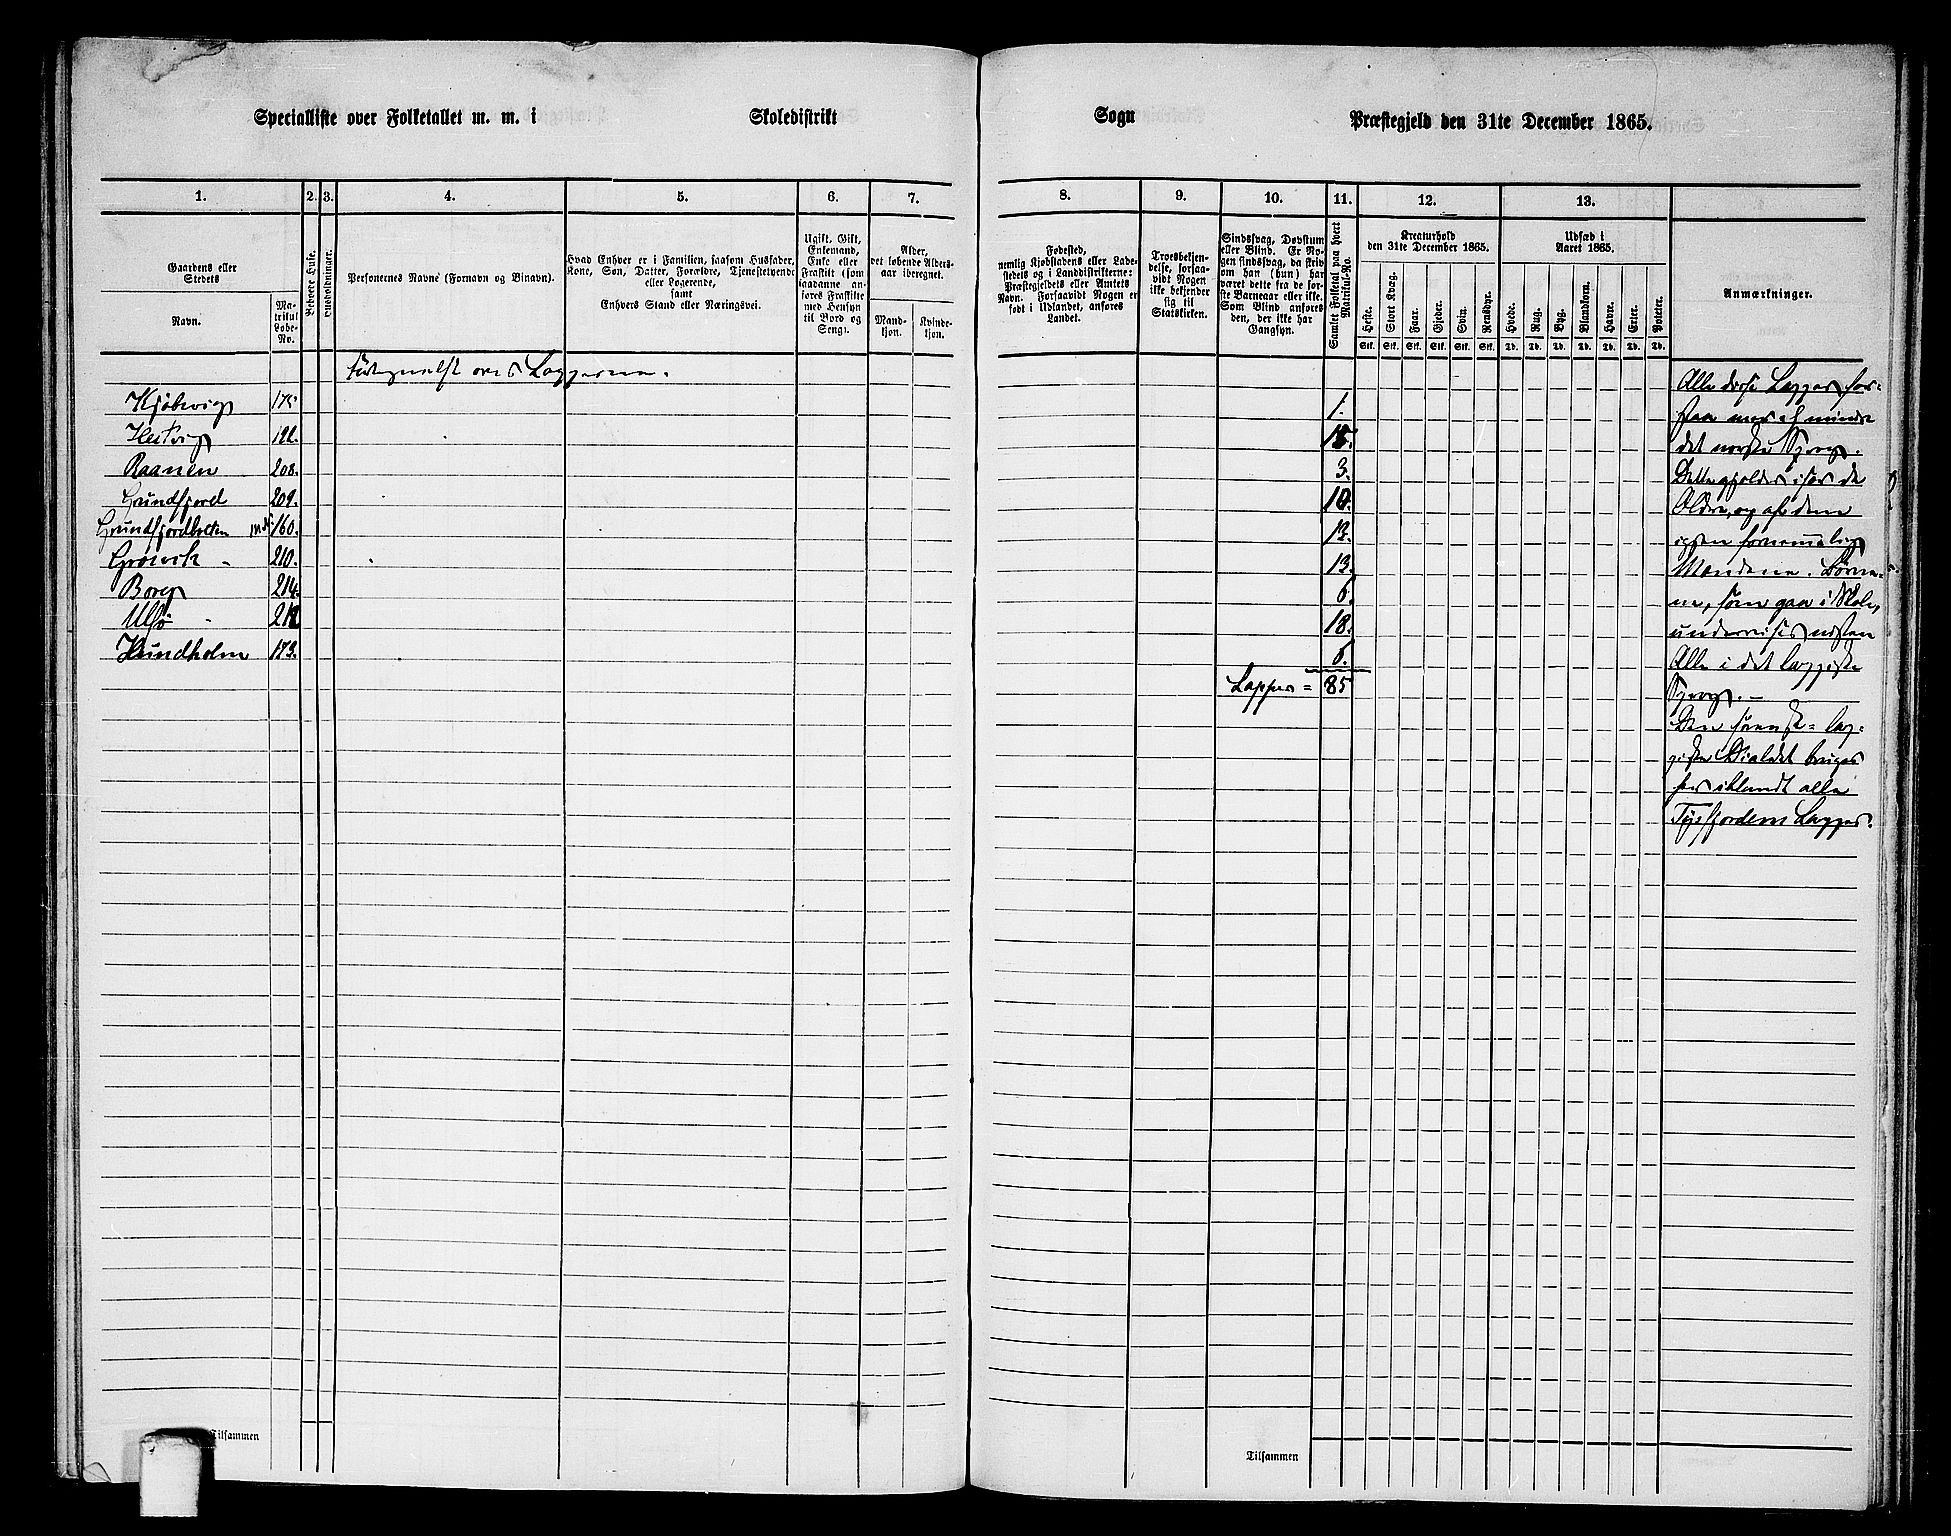 Specialliste over Folketallet m. m. i Skoledistrikt Sogn Præstegjeld den 31te December 1865.
1. 2. 3. 4. 5. 6. 7. 8. 9. 10. 11. 12. 13.
Gaardens eller
Stedets
Navn.
Ma-
trikul
Løbe-
No.
Beboede Huse.
Huusholdninger.
Personernes Navne (Fornavn og Binavn).
Hvad Enhver er i Familien, saasom Husfader,
Kone, Søn, Datter, Forældre, Tjenestetyende
eller Logerende,
samt
Enhvers Stand eller Næringsvei.
Ugift, Gift,
Enkemand,
Enke eller
Fraskilt (som
saadanne an-
føres Fraskilte
med Hensyn
til Bord og
Seng).
Alder,
det løbende Alders-
aar iberegnet.
Mand-
kjøn.
Kvinde-
kjøn.
Fødested,
nemlig Kjøbstadens eller Lade-
stedets og i Landdistrikterne:
Præstegjeldets eller Amtets
Navn. Forsaavidt Nogen er
født i Udlandet, anføres
Landet.
Troesbekjen-
delse, forsaa-
vidt Nogen
ikke bekjender
sig til
Statskirken.
Sindssvag, Døvstum
eller Blind. Er No-
gen sindssvag, da skriv
om han (hun) har
været dette fra de før-
ste Barneaar eller ikke.
Som Blind anføres
den, der ikke har
Gangsyn.
Samlet Folketal paa hvert
Matrikul-No.
Kreaturhold
den 31te December 1865.
Heste. Stort Kvæg. Faar. Gjeder. Svin. Rensdyr.
Stk. Stk. Stk. Stk. Stk. Stk.
Udsæd i
Aaret 1865.
Hvede. Rug. Byg. Blandkorn. Havre. Erter. Poteter.
Td. Td. Td. Td. Td. Td. Td.
Anmærkninger.
over Lapperne.
Kjøbvig 175 1.
Hestvig 15.
Raanen 208. 3.
Grundfjord 209. 10.
Grundfjordbotten 160. 13.
Grøsvik 210. 13.
Borg 214. 6.
Ulsø 212 18.
Hundholm 173. 6.
Lapper = 85
Alle disse Lapper for-
staa mer el mindre
det norske Sprog.
Dette gjelder især de
Ældre, og af dem
igjen fornemmelig
Mændene. Børne-
ne, som gaa i Skole,
undervises næsten
Alle i det lappiske
Sprog. –
Den svensk-lap-
piske Dialekt bruges
her iblandt alle
Tysfjordens Lapper.
Tilsammen
Tilsammen